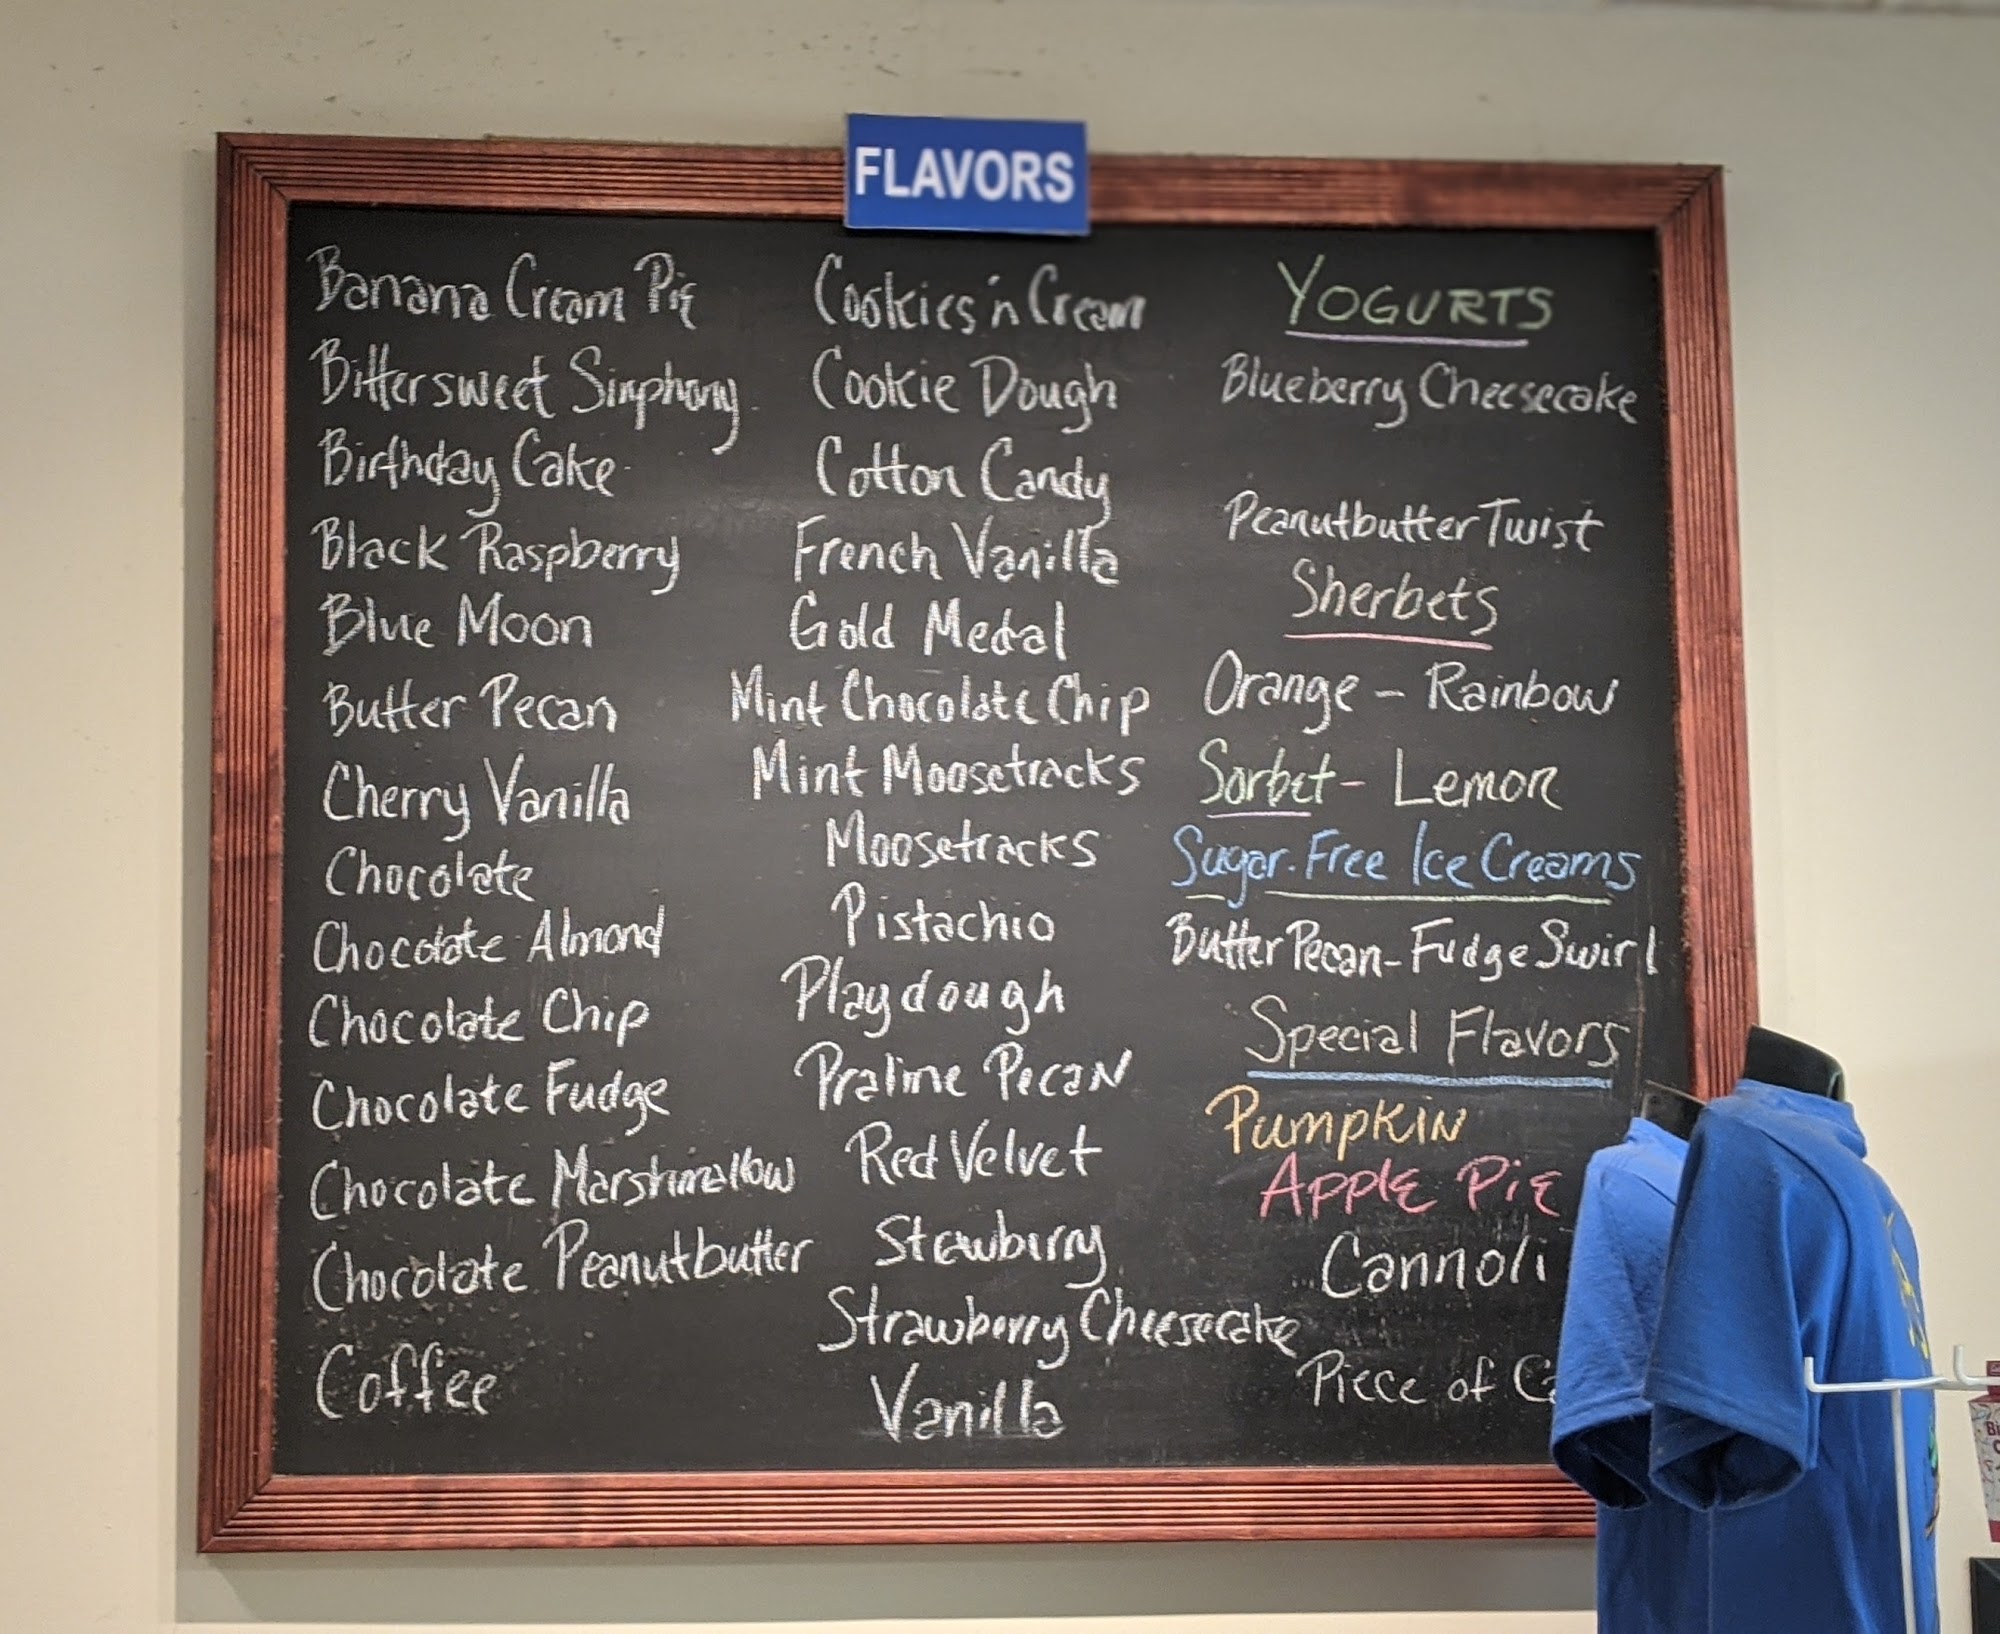 FLAVORS
Banana Cream Pie
Bittersweet Sinphony
Birthday Cake
Black Raspberry
Blue Moon
Butter Pecan
Cherry Vanilla
Chocolate
Chocolate Almond
Chocolate Chip
Chocolate Fudge
Chocolate Marshmallow
Chocolate Peanutbutter
Coffee
Cookies 'n Cream
Cookie Dough
Cotton Candy
French Vanilla
Gold Medal
Mint Chocolate Chip
Mint Moosetracks
Moosetracks
Pistachio
Playdough
Praline Pecan
Red Velvet
Stawberry
Strawberry Cheesecake
Vanilla
YOGURTS
Blueberry Cheesecake
Peanutbutter Twist
Sherbets
Orange - Rainbow
Sorbet - Lemon
Sugar-Free Ice Creams
Butter Pecan - Fudge Swirl
Special Flavors
Pumpkin
Apple Pie
Cannoli
Piece of